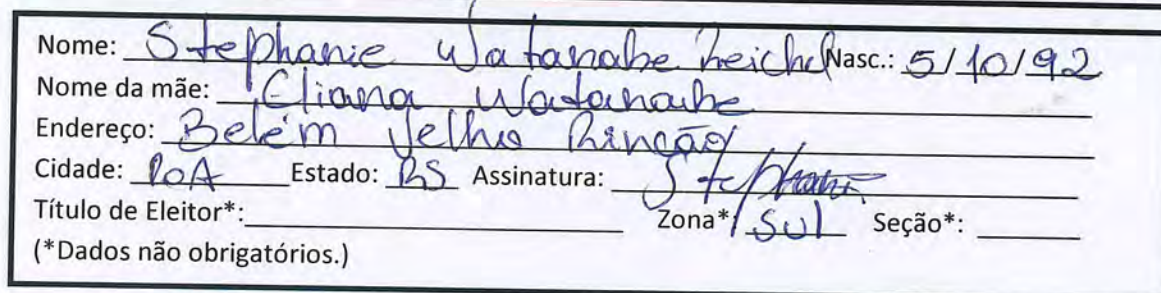 Nome: Stephanie Watanabe Reichel Nasc.: 5/10/92
Nome da mãe: Eliana Watanabe
Endereço: Belém Velho Rincão
Cidade: POA Estado: RS Assinatura: Stephanie
Título de Eleitor*: Zona*: Sul Seção*:
(*Dados não obrigatórios.)